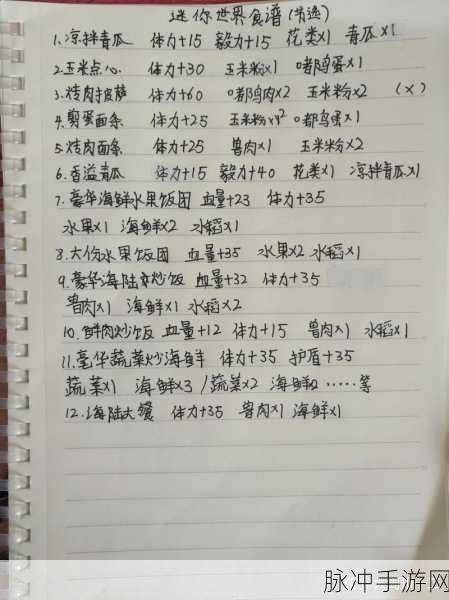 迷你世界食谱(节选)
1.凉拌青瓜 体力+15 毅力+15 花类x1 青瓜x1
2.玉米点心 体力+30 玉米粉x1 嘟嘟蛋x1
3.烤肉披萨 体力+60 嘟嘟肉x2 玉米粉x2 (x)
4.煎蛋面条 体力+25 玉米粉x2 嘟嘟蛋x1
5.烤肉面条 体力+25 兽肉x1 玉米粉x2
6.香溢青瓜 体力+15 毅力+40 花类x1 凉拌青瓜x1
7.豪华海鲜水果饭团 血量+23 体力+35
水果x1 海鲜x2 水稻x1
8.大份水果饭团 血量+35 水果x2 水稻x1
9.豪华海陆炒饭 血量+32 体力+35
兽肉x1 海鲜x1 水稻x2
10.鲜肉炒饭 血量+12 体力+15 兽肉x1 水稻x1
11.豪华蔬菜炒海鲜 体力+35 护盾+35
蔬菜x1 海鲜x3/蔬菜x2 海鲜x2 ……等
12.海陆大餐 体力+35 兽肉x1 海鲜x1
脉冲手游网